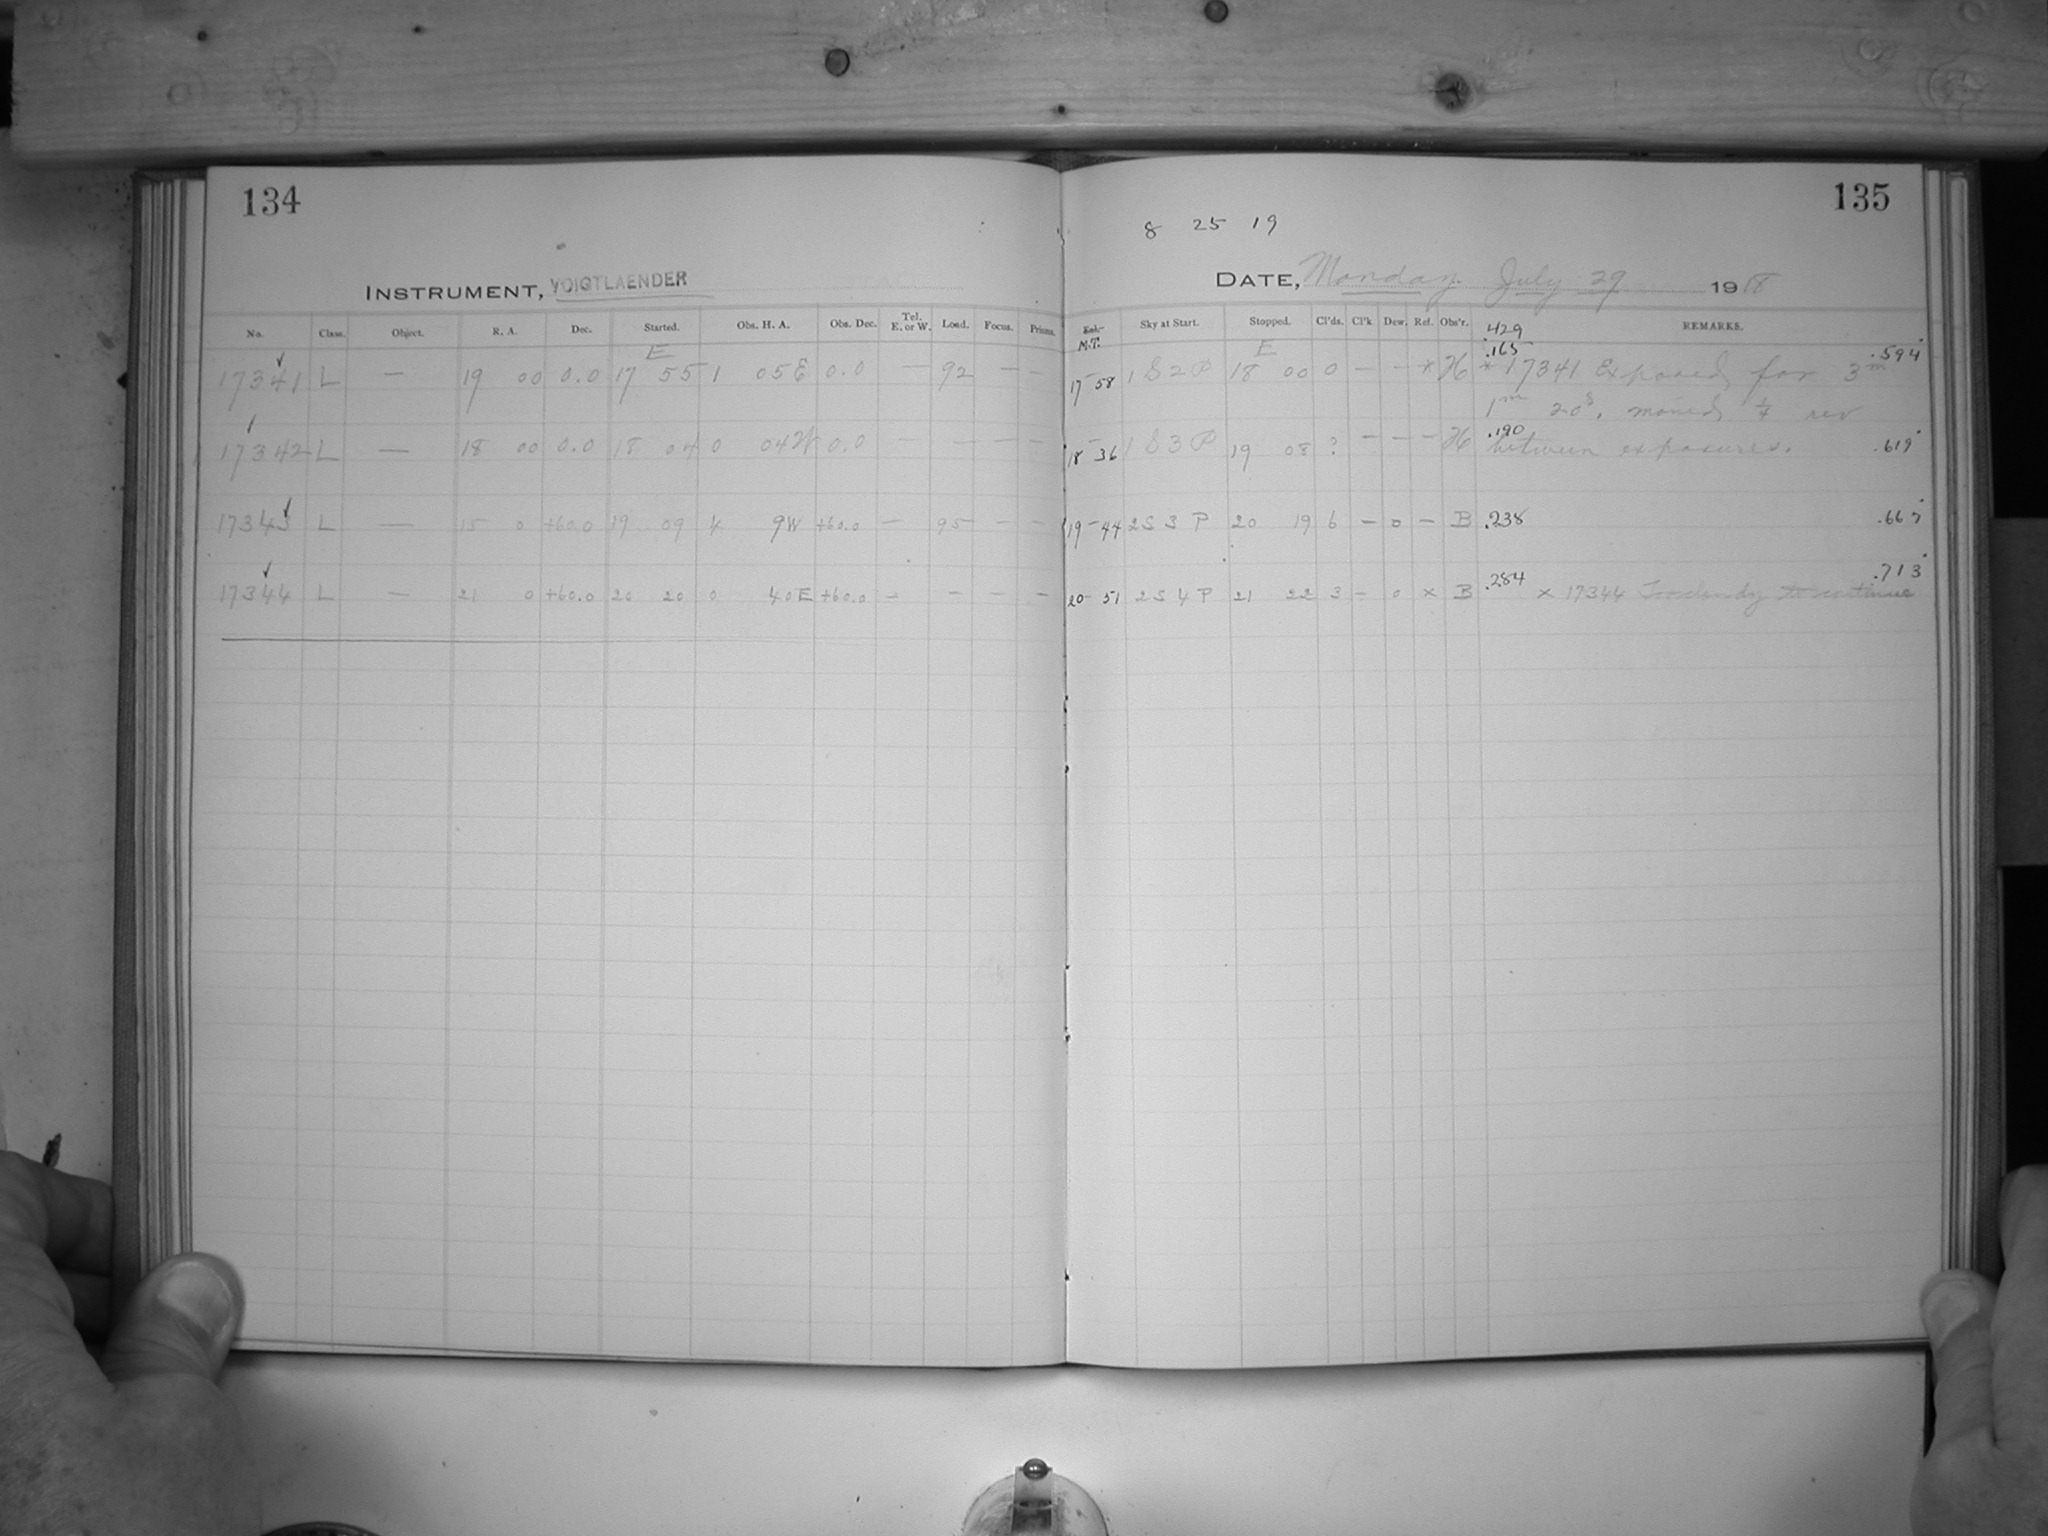 134
135
8 25 19
INSTRUMENT, VOIGTLAENDER
DATE, Monday July 29 1918
No. Class. Object. R. A. Dec. Started. Obs. H. A. Obs. Dec. Tel. E. or W. Load. Focus. Prisms. M.T. Sky at Start. Stopped. Cl'ds. Cl'k Dew. Ref. Obs'r. REMARKS.
.429
E E .165 .594
17341 L — 19 00 0.0 17 55 1 05 E 0.0 — 92 — — 17-58 1 S 2 P 18 00 0 — — * H * 17341 Exposed for 3m
1m 20s, moved 1/4 rev
17342 L — 18 00 0.0 18 04 0 04 W 0.0 — — — 18-36 1 S 3 P 19 08 ? — — — H .190 between exposures. .619
17343 L — 15 0 +60.0 19 09 4 9 W +60.0 — 95 — — 19-44 2 S 3 P 20 19 6 — 0 — B .238 .667
17344 L — 21 0 +60.0 20 20 0 40 E +60.0 — — — — 20-51 2 S 4 P 21 22 3 — 0 x B .284 x 17344 Too cloudy to continue .713